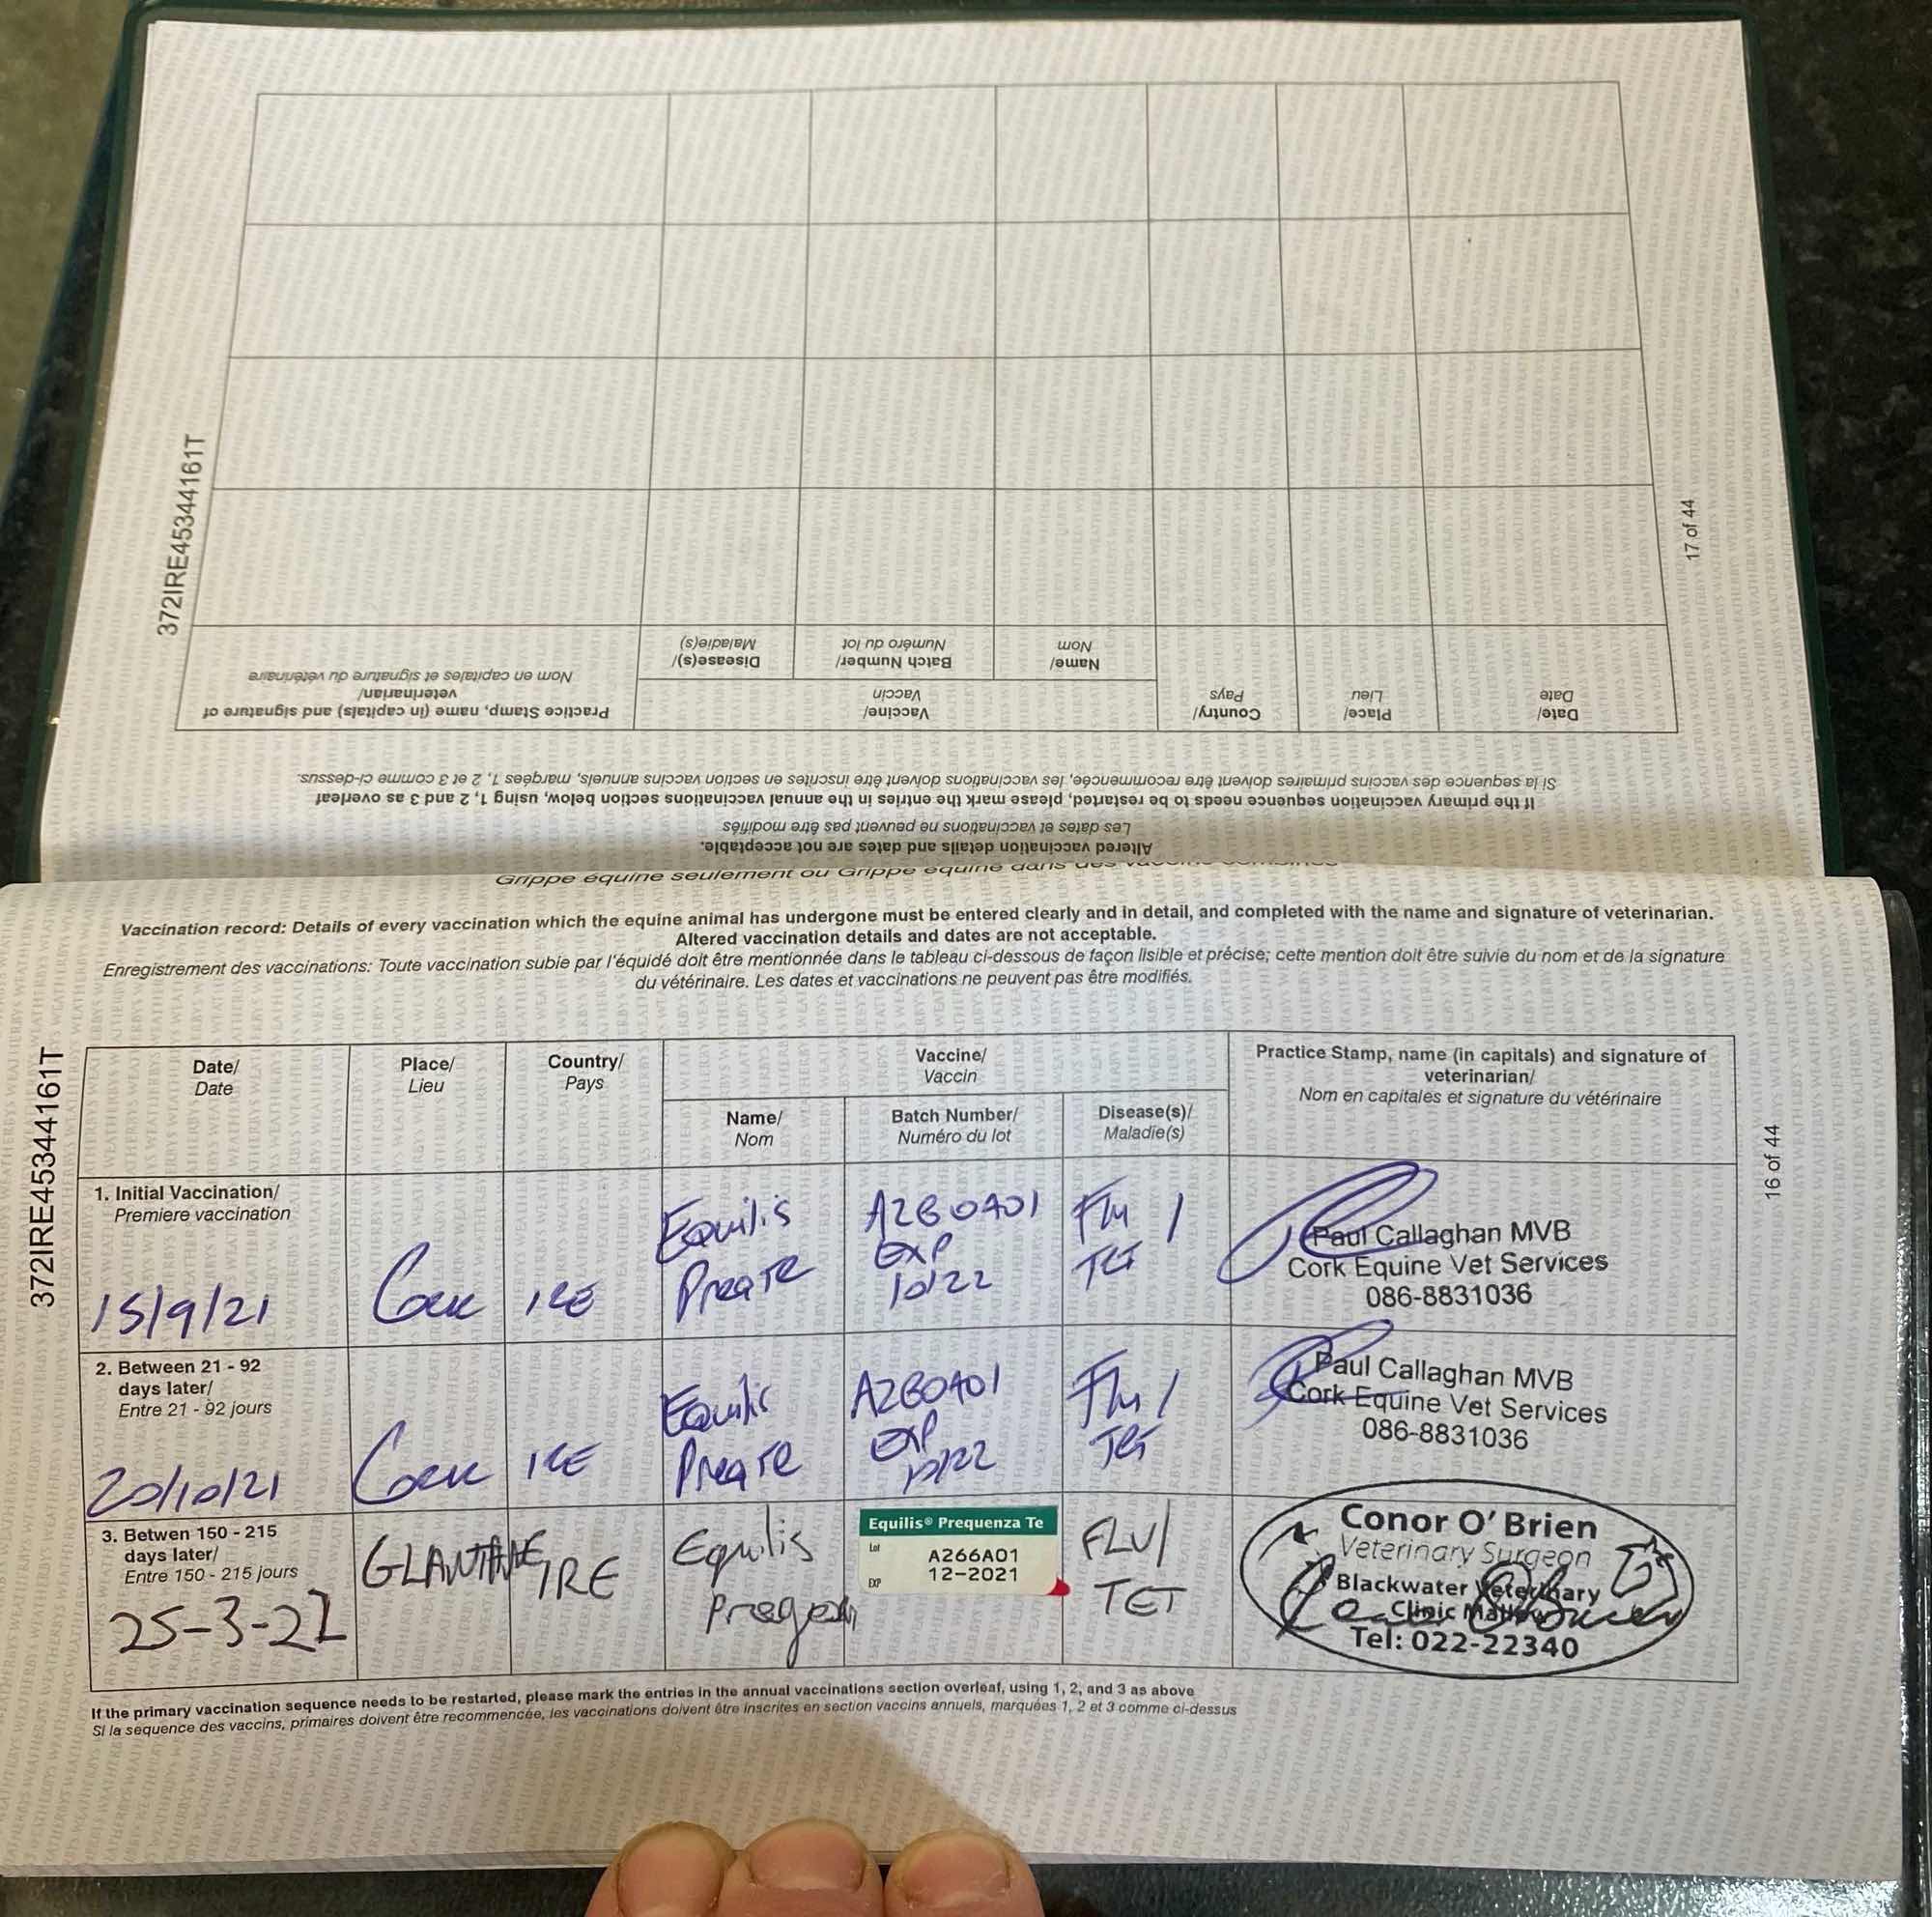 372IRE45344161T
17 of 44
Altered vaccination details and dates are not acceptable.
Les dates et vaccinations ne peuvent pas être modifiés
If the primary vaccination sequence needs to be restarted, please mark the entries in the annual vaccinations section below, using 1, 2 and 3 as overleaf
Si la sequence des vaccins primaires doivent être recommencée, les vaccinations doivent être inscrites en section vaccins annuels, margées 1, 2 et 3 comme ci-dessus.
Date/
Date
Place/
Lieu
Country/
Pays
Vaccine/
Vaccin
Name/
Nom
Batch Number/
Numéro du lot
Disease(s)/
Maladie(s)
Practice Stamp, name (in capitals) and signature of
veterinarian/
Nom en capitales et signature du vétérinaire
Grippe équine seulement ou Grippe equine dans des vaccins combinés
Vaccination record: Details of every vaccination which the equine animal has undergone must be entered clearly and in detail, and completed with the name and signature of veterinarian.
Altered vaccination details and dates are not acceptable.
Enregistrement des vaccinations: Toute vaccination subie par l'équidé doit être mentionnée dans le tableau ci-dessous de façon lisible et précise; cette mention doit être suivie du nom et de la signature
du vétérinaire. Les dates et vaccinations ne peuvent pas être modifiés.
372IRE45344161T
16 of 44
Date/
Date
Place/
Lieu
Country/
Pays
Vaccine/
Vaccin
Name/
Nom
Batch Number/
Numéro du lot
Disease(s)/
Maladie(s)
Practice Stamp, name (in capitals) and signature of
veterinarian/
Nom en capitales et signature du vétérinaire
1. Initial Vaccination/
Premiere vaccination
15/9/21
Cork
IRE
Equilis
Preq TE
A260A01
EXP
10/22
Flu /
TET
Paul Callaghan MVB
Cork Equine Vet Services
086-8831036
2. Between 21 - 92
days later/
Entre 21 - 92 jours
20/10/21
Cork
IRE
Equilis
Preq TE
A260A01
EXP
10/22
Flu /
TET
Paul Callaghan MVB
Cork Equine Vet Services
086-8831036
3. Betwen 150 - 215
days later/
Entre 150 - 215 jours
25-3-22
GLANTANE
IRE
Equilis
Equilis® Prequenza Te
Lot
A266A01
EXP
12-2021
FLU/
TET
Conor O' Brien
Veterinary Surgeon
Blackwater Veterinary
Clinic Mallow
Tel: 022-22340
If the primary vaccination sequence needs to be restarted, please mark the entries in the annual vaccinations section overleaf, using 1, 2, and 3 as above
Si la sequence des vaccins, primaires doivent être recommencée, les vaccinations doivent être inscrites en section vaccins annuels, marquées 1, 2 et 3 comme ci-dessus